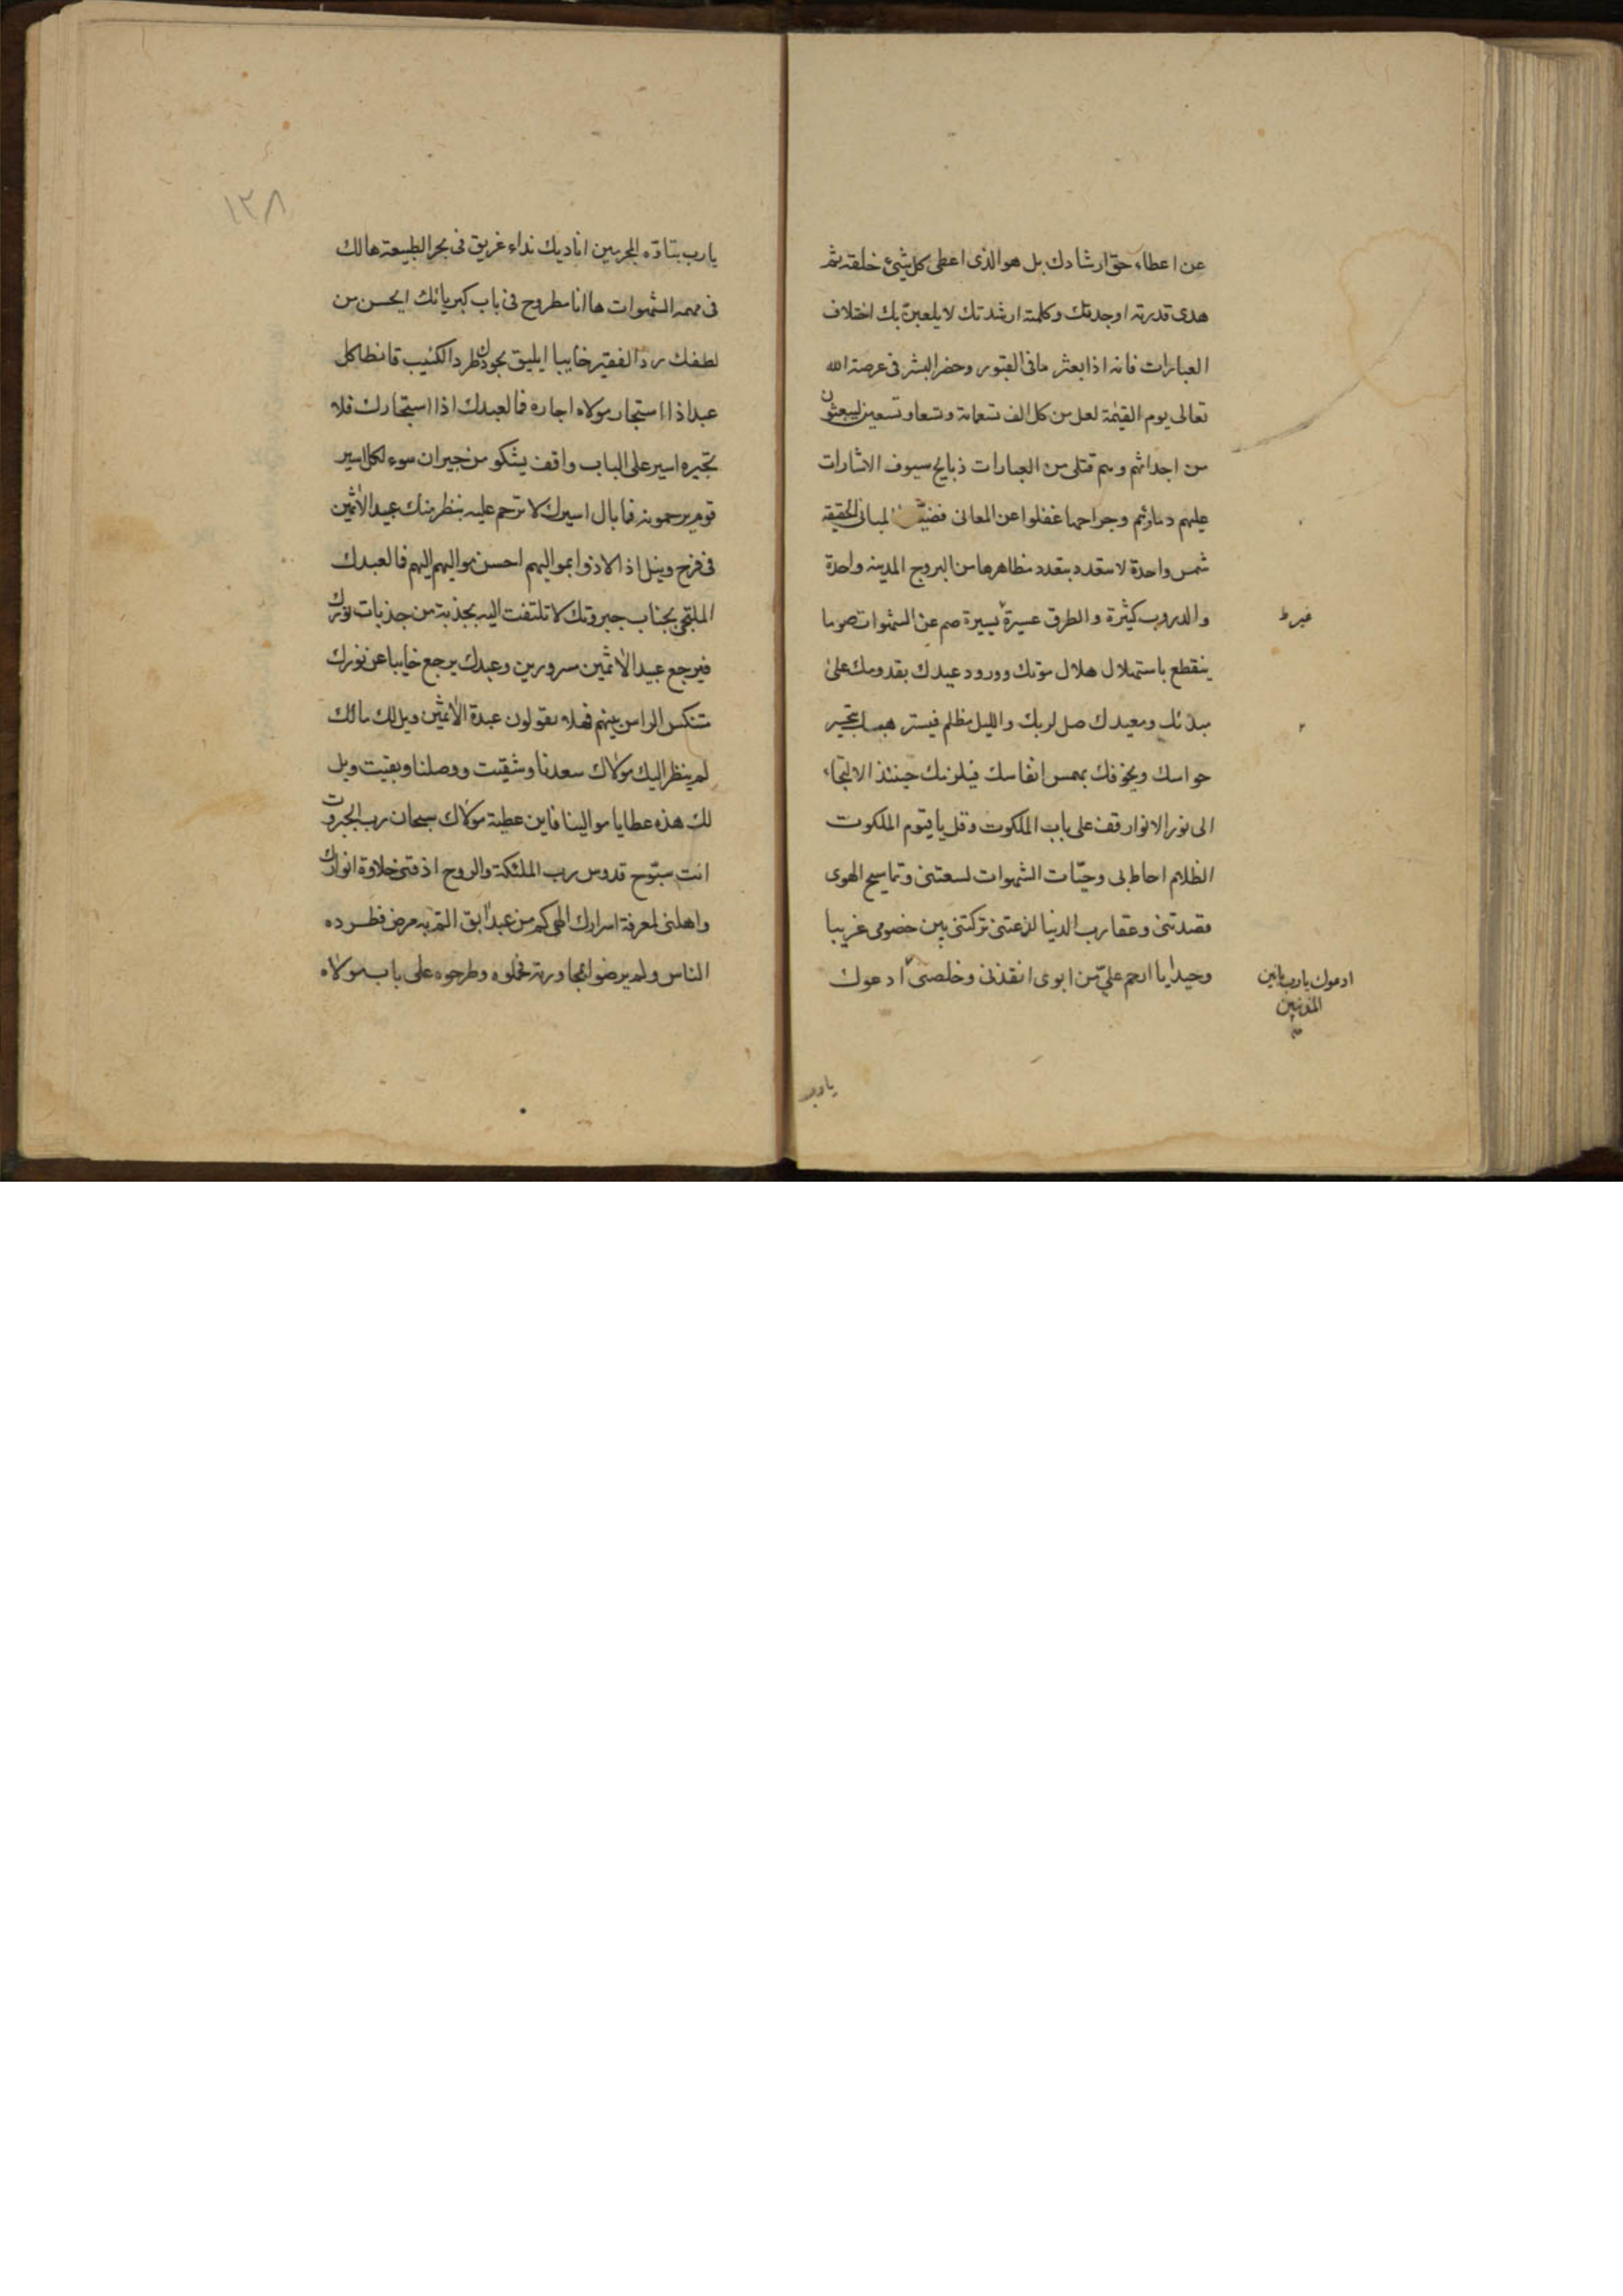 عن اعطاء حق ارشادك بل هو الذى اعطى كل شئ خلقه ثم
هدى قدرته اوجدتك وكلمته ارشدتك لا يلعبن بك اختلاف
العبارات فانه اذا بعثر ما فى القبور وحضر البشر فى عرصة الله
تعالى يوم القيمة لعل من كل الف تسعمائة وتسعا وتسعين ليبعثون
من اجداثهم وهم قتلى من العبارات ذبايح سيوف الاشارات
عليهم دماؤهم وجراحها غفلوا عن المعانى فضيّ المبانى الحقيقة
شمس واحدة لا يتعدد بتعدد مظاهرها من البروج المدينة واحدة
والدروب كثيرة والطرق عسيرة يسيرة صم عن الشهوات صوما
غير ط
ينقطع باستهلال هلال موتك وورود عيدك بقدومك على
مبدئك ومعيدك صل لربك والليل مظلم فيستر تحير
حواسك ويخوفك بهمس انفاسك فيلزمك حينئذ الالتجاء
الى نور الانوار قف على باب الملكوت وقل يا قيوم الملكوت
الظلام احاط بى وحيّات الشهوات لسعتنى وتماسيح الهوى
قصدتنى وعقارب الدنيا لذعتنى تركتنى بين خصومى غريبا
وحيدا يا ارحم علىّ من ابوى انقذنى وخلصنى ادعوك
ادعوك يا رب بانين
المذنبين
يا رب
١٣٨
يا رب بتاوّه المجرمين اناديك نداء غريق فى بحر الطبيعة هالك
فى مهمه الشهوات ها انا مطروح فى باب كبريائك ايحسن من
لطفك ردّ الفقير خايبا ايليق بجودك طرد الكئيب قانطا كل
عبد اذا استجار مولاه اجاره فما لعبدك اذا استجارك فلا
تجيره اسير على الباب واقف يشكو من جيران سوء لكل اسير
قوم يرحمونه فما بال اسيرك لا ترحم عليه بنظر منك عبيد الاثمين
فى فرح ونيل اذ لاذوا بمواليهم احسن مواليهم اليهم فما لعبدك
الملتجى بجناب جبروتك لا تلتفت اليه بجذبة من جذبات نورك
فيرجع عبيد الاثمين مسرورين وعبدك يرجع خايبا عن نورك
منتكس الراس بينهم فهلا يقولون عبدة الاثمين ويل لك ما لك
لم ينظر اليك مولاك سعدنا وشقيت ووصلنا وبقيت ويل
لك هذه عطايا موالينا فاين عطية مولاك سبحان رب الجبروت
انت سبّوح قدوس رب الملئكة والروح اذقنى حلاوة انوارك
واهلنى لمعرفة اسرارك الهى كم من عبد ابق التم به مرض فطرده
الناس ولم يرضوا بمجاورته فحملوه وطرحوه على باب مولاه